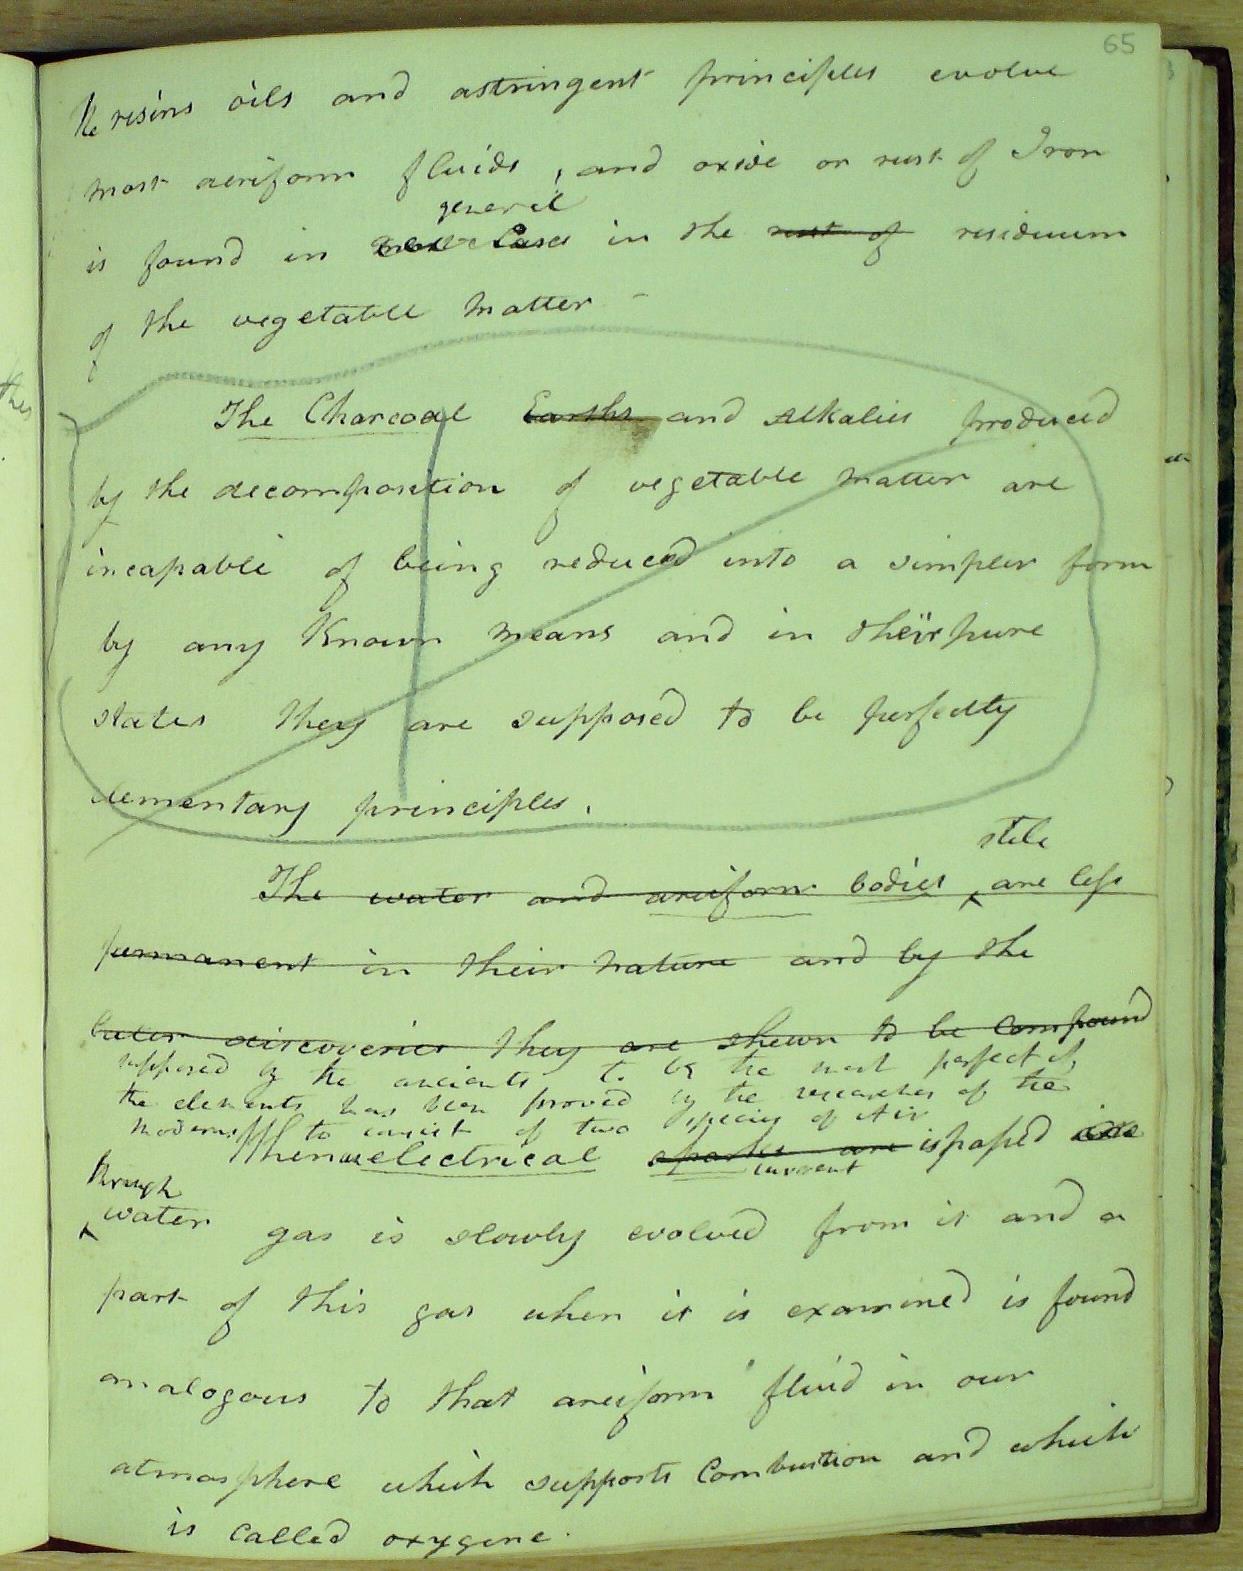 65
The resins oils and astringent principles evolve
most aeriform fluids, and oxide or rust of Iron
general
is found in Cases in the rust of residuum
of the vegetable matter -
The Charcoal Earths and Alkalies produced
by the decomposition of vegetable matter are
incapable of being reduced into a simpler form
by any Known means and in their pure
states they are supposed to be perfectly
elementary principles.
stile
The water and aeriform bodies ^ are less
permanent in their nature and by the
later discoveries they are shewn to be Compound
supposed by the ancients to be the most perfect of
the elements has been proved by the researches of the
moderns to consist of two species of Air
When electrical sparks are is passed
current
through
^ water gas is slowly evolved from it and a
part of this gas when it is examined is found
analogous to that aeriform fluid in our
atmosphere which supports Combustion and which
is called oxygene.